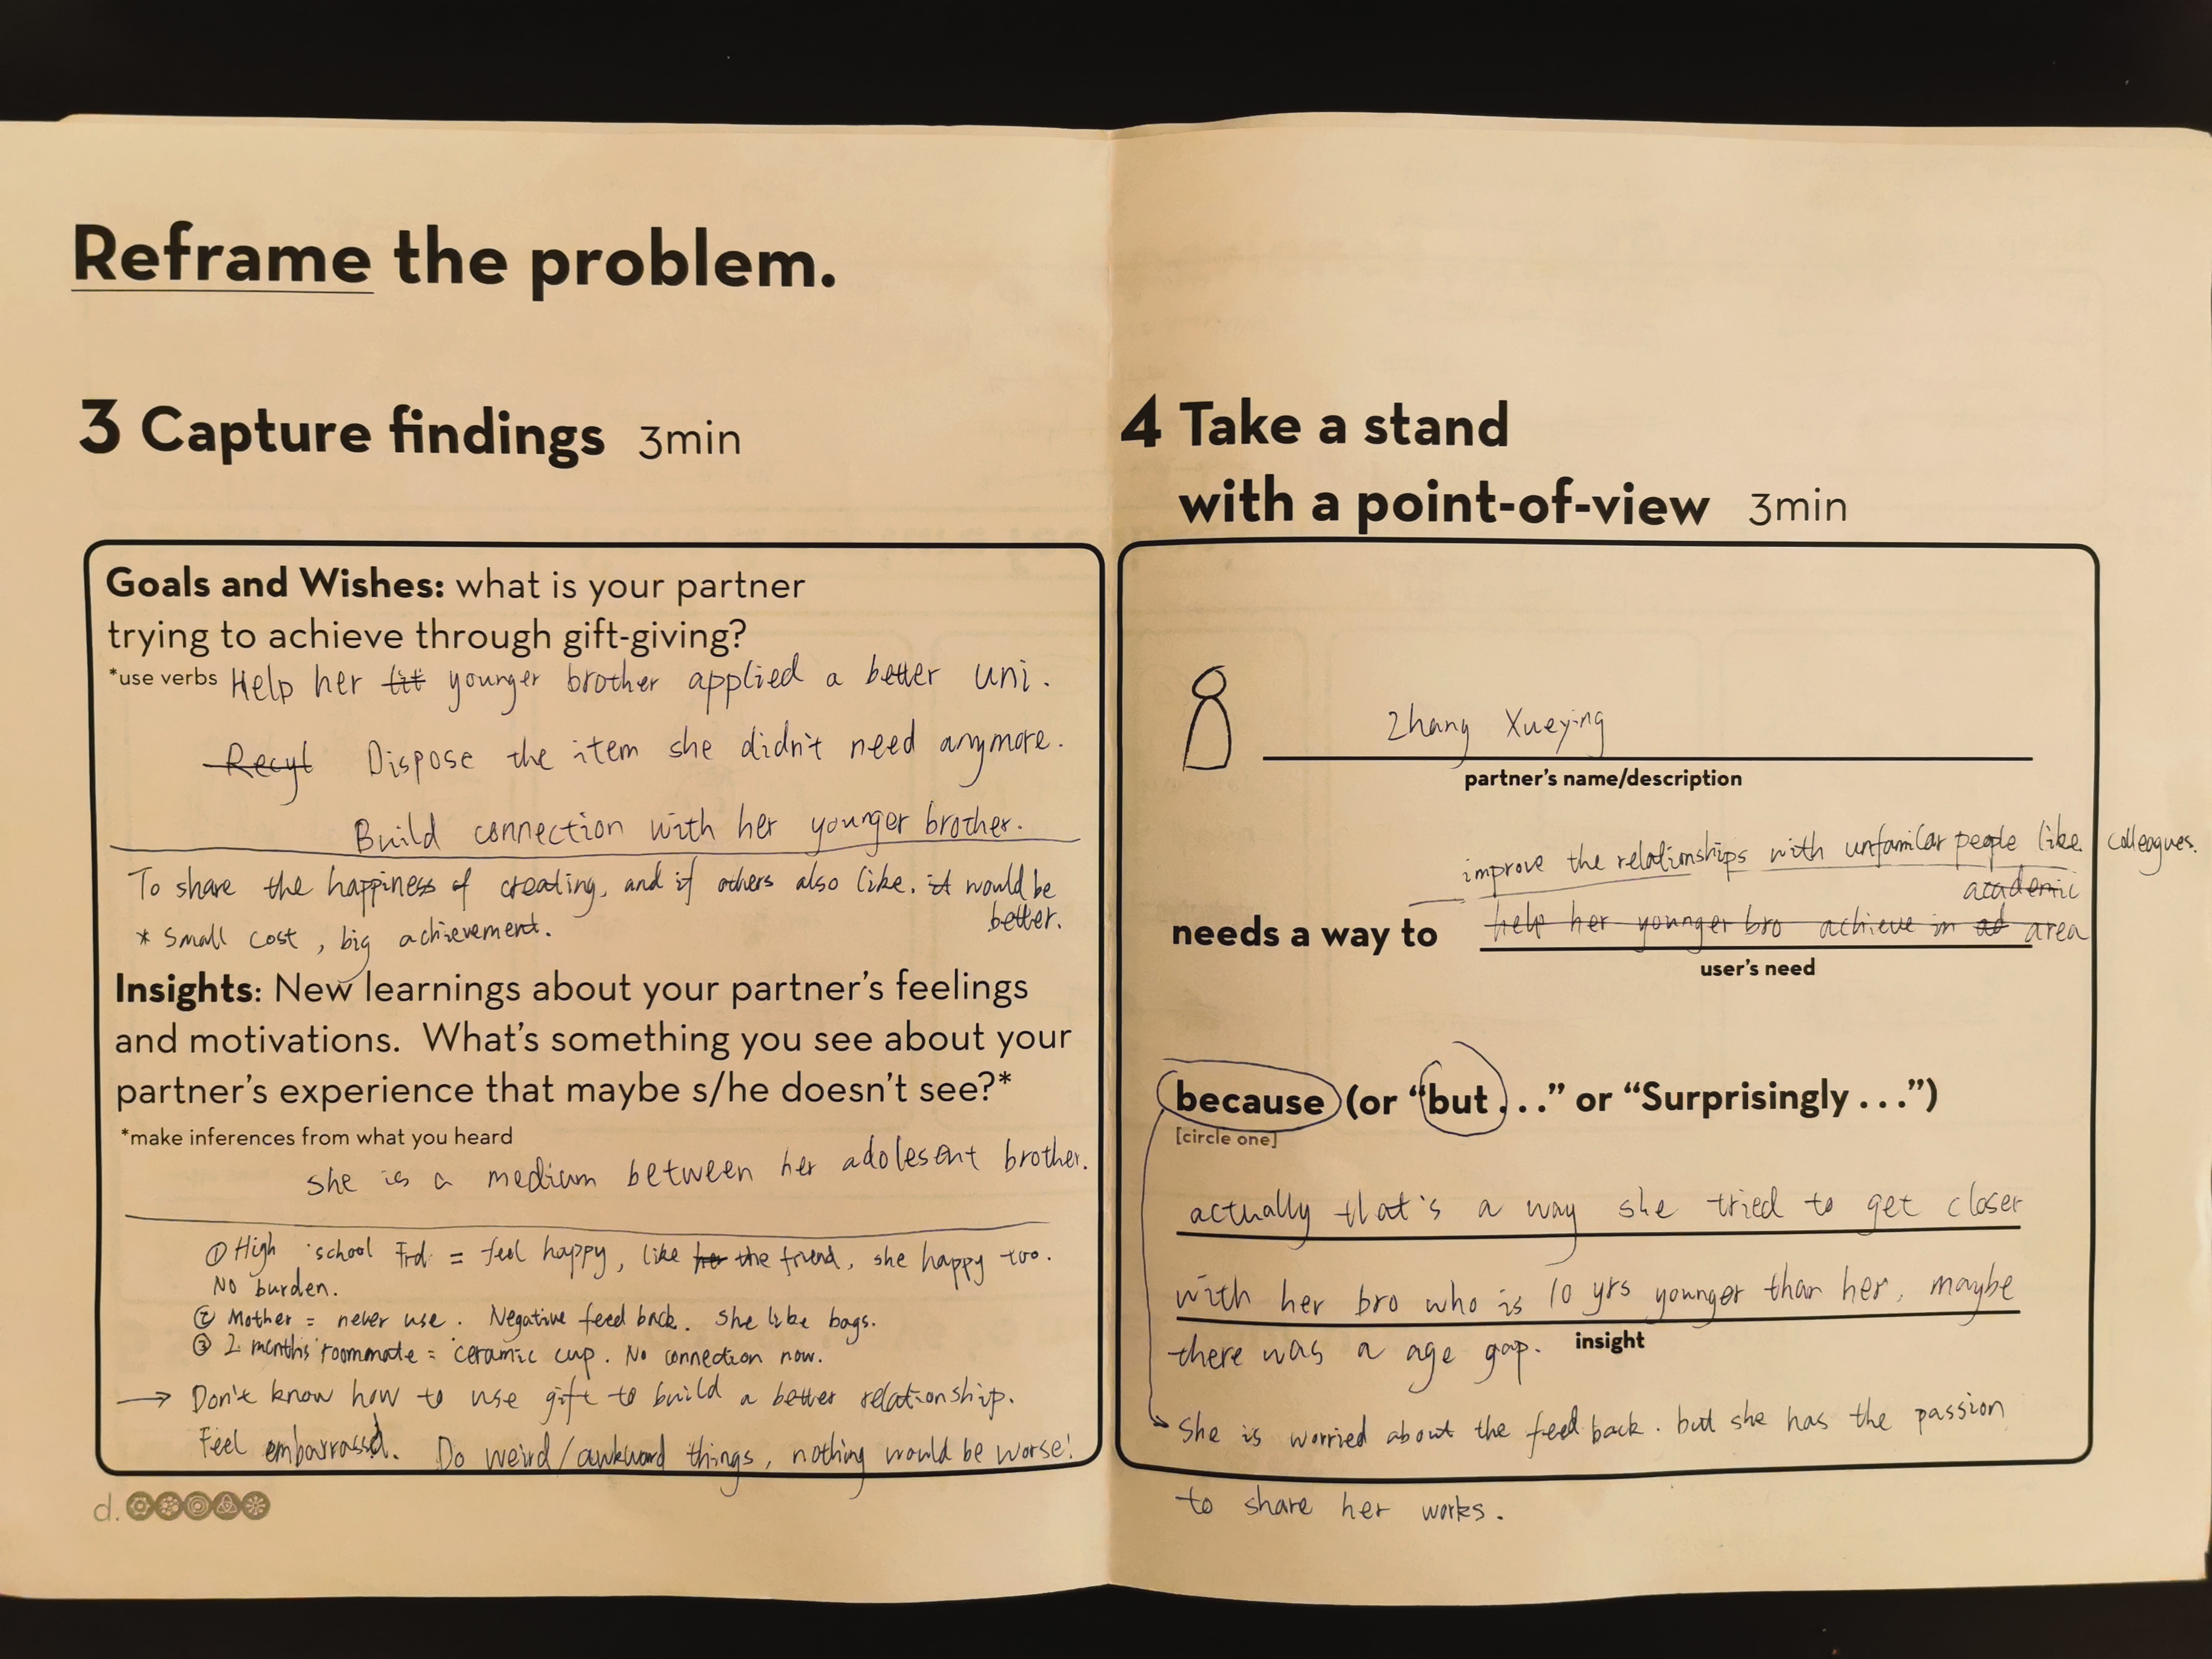 Reframe the problem.
3 Capture findings 3min
Goals and Wishes: what is your partner
trying to achieve through gift-giving?
*use verbs Help her younger brother applied a better uni.
Recyl Dispose the item she didn't need anymore.
Build connection with her younger brother.
To share the happiness of creating, and if others also like. it would be
better.
* Small cost, big achievement.
Insights: New learnings about your partner's feelings
and motivations. What's something you see about your
partner's experience that maybe s/he doesn't see?*
*make inferences from what you heard
she is a medium between her adolesent brother.
① High school Frd. = feel happy, like her the friend, she happy too.
No burden.
② Mother = never use. Negative feed back. She like bags.
③ 2 months' roommate = ceramic cup. No connection now.
→ Don't know how to use gift to build a better relationship.
Feel embarrassd. Do weird/awkward things, nothing would be worse!
d.
4 Take a stand
with a point-of-view 3min
Zhang Xueying
partner's name/description
improve the relationships with unfamilar people like colleagues.
academic
needs a way to help her younger bro achieve in ad area
user's need
because (or "but..." or "Surprisingly...")
[circle one]
actually that's a way she tried to get closer
with her bro who is 10 yrs younger than her, maybe
there was a age gap. insight
She is worried about the feed back. but she has the passion
to share her works.